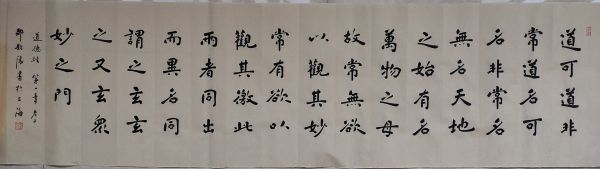 道可道非
常道名可
名非常名
無名天地
之始有名
萬物之母
故常無欲
以觀其妙
常有欲以
觀其徼此
兩者同出
而異名同
謂之玄玄
之又玄衆
妙之門
道德經 第一章
書於上海